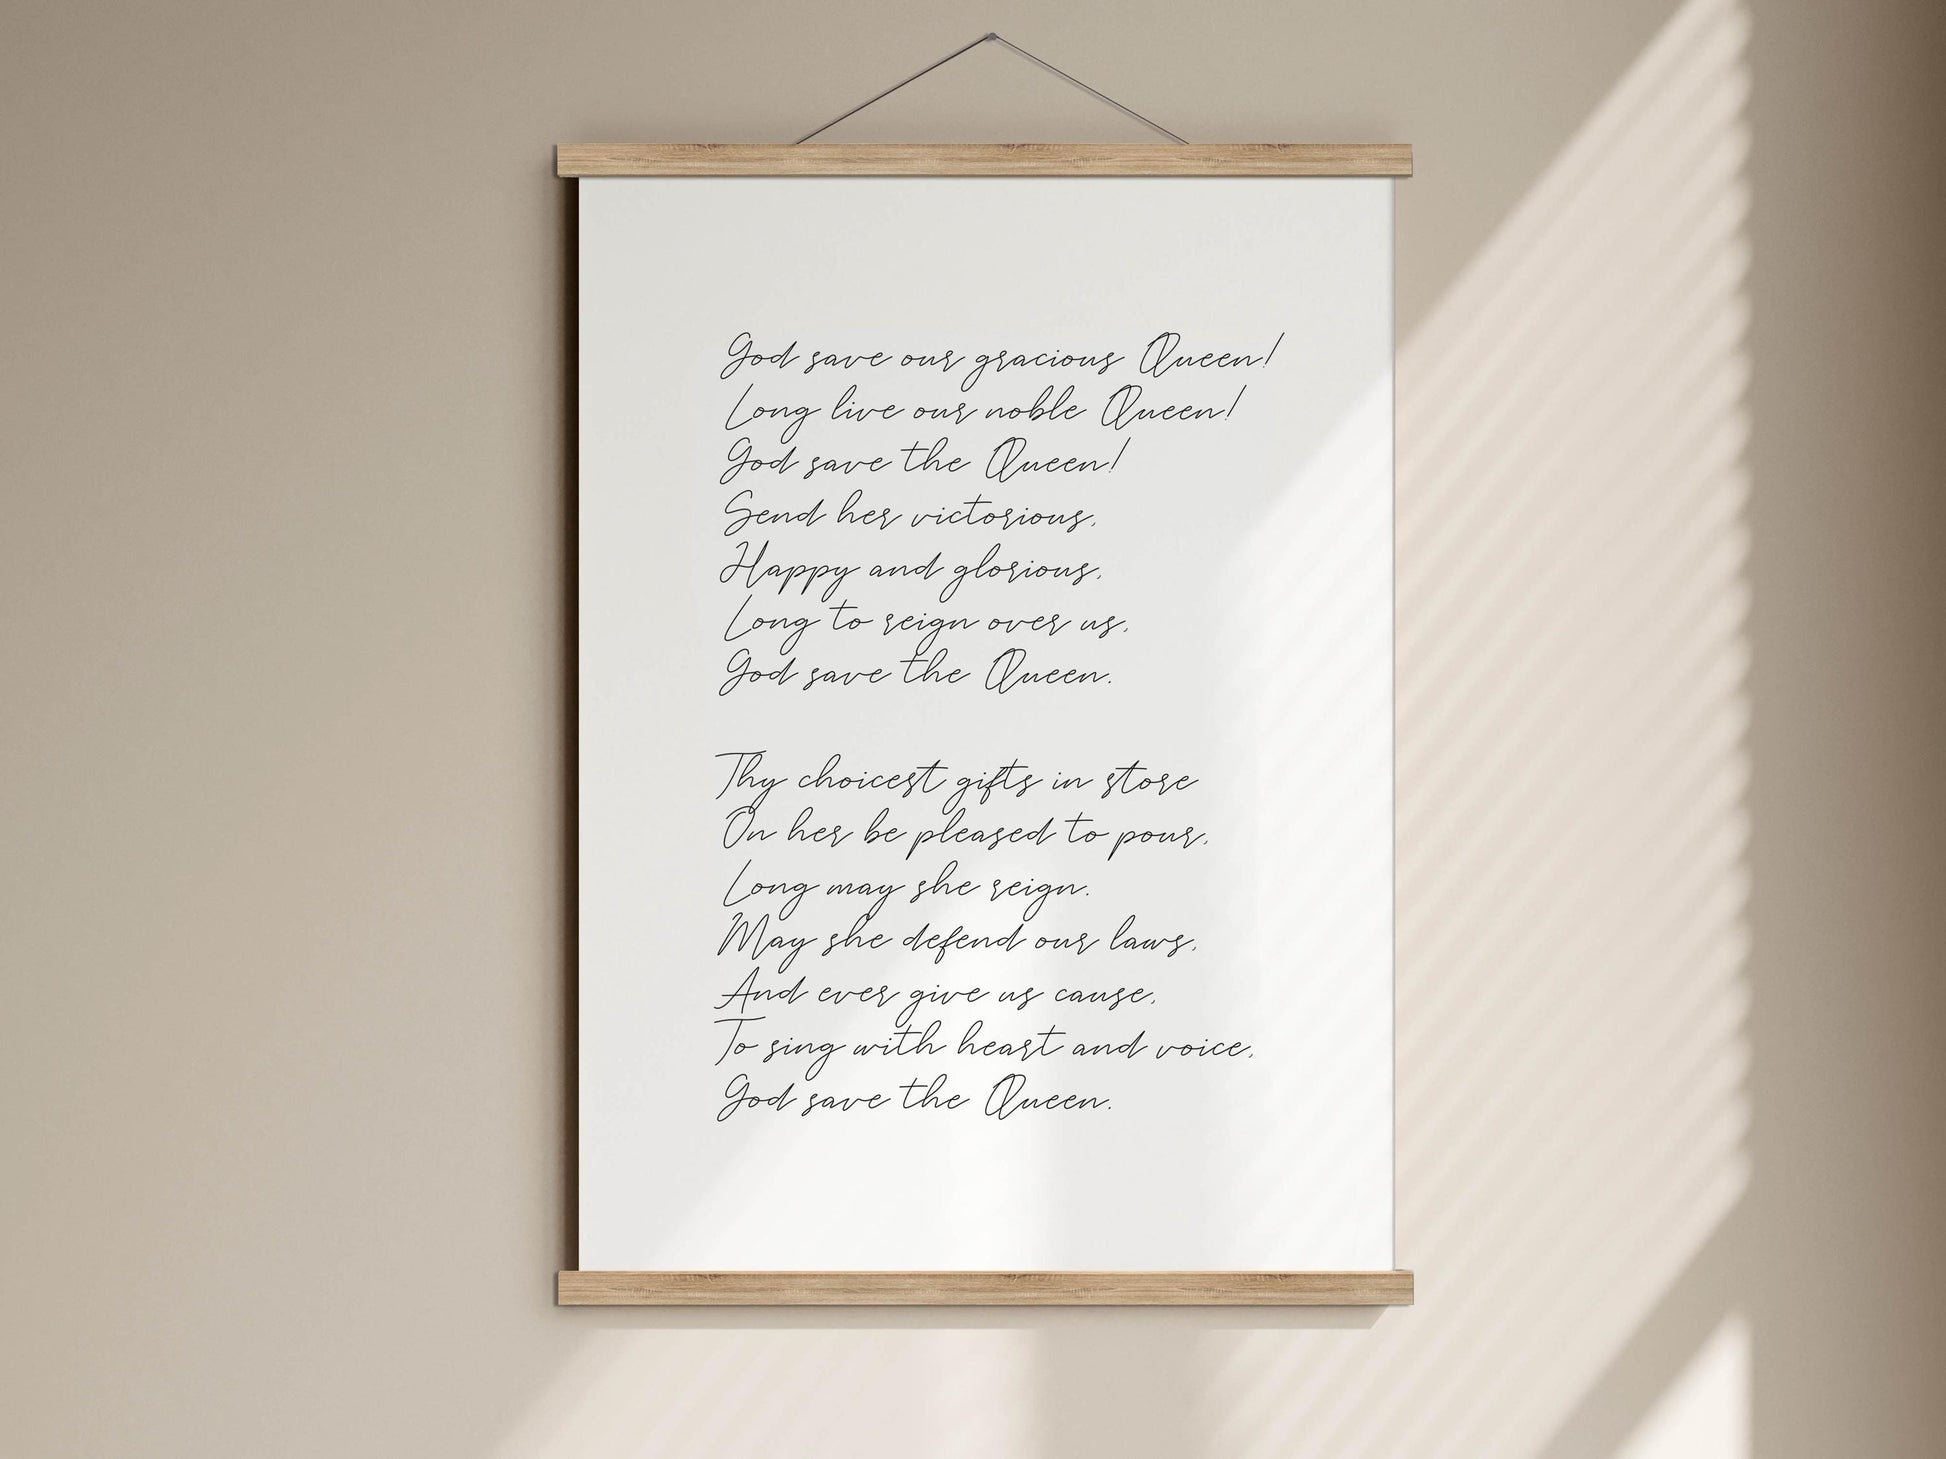 God save our gracious Queen!
Long live our noble Queen!
God save the Queen!
Send her victorious,
Happy and glorious,
Long to reign over us,
God save the Queen.
Thy choicest gifts in store
On her be pleased to pour,
Long may she reign.
May she defend our laws,
And ever give us cause,
To sing with heart and voice,
God save the Queen.